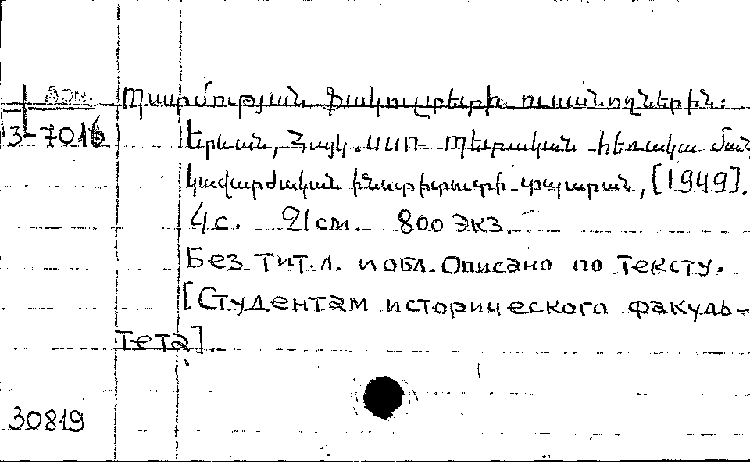 Պատմության ֆակուլտետի ուսանողներին:
3-7016 Երևան, Հայկ. ՍՍՌ Պետական հեռակա ման
կավարժական ինստիտուտի տպարան, [1949].
4 с. 21 см. 800 экз.
Без тит. л. и обл. Описано по тексту.
[Студентам исторического факуль-
тета].
30819